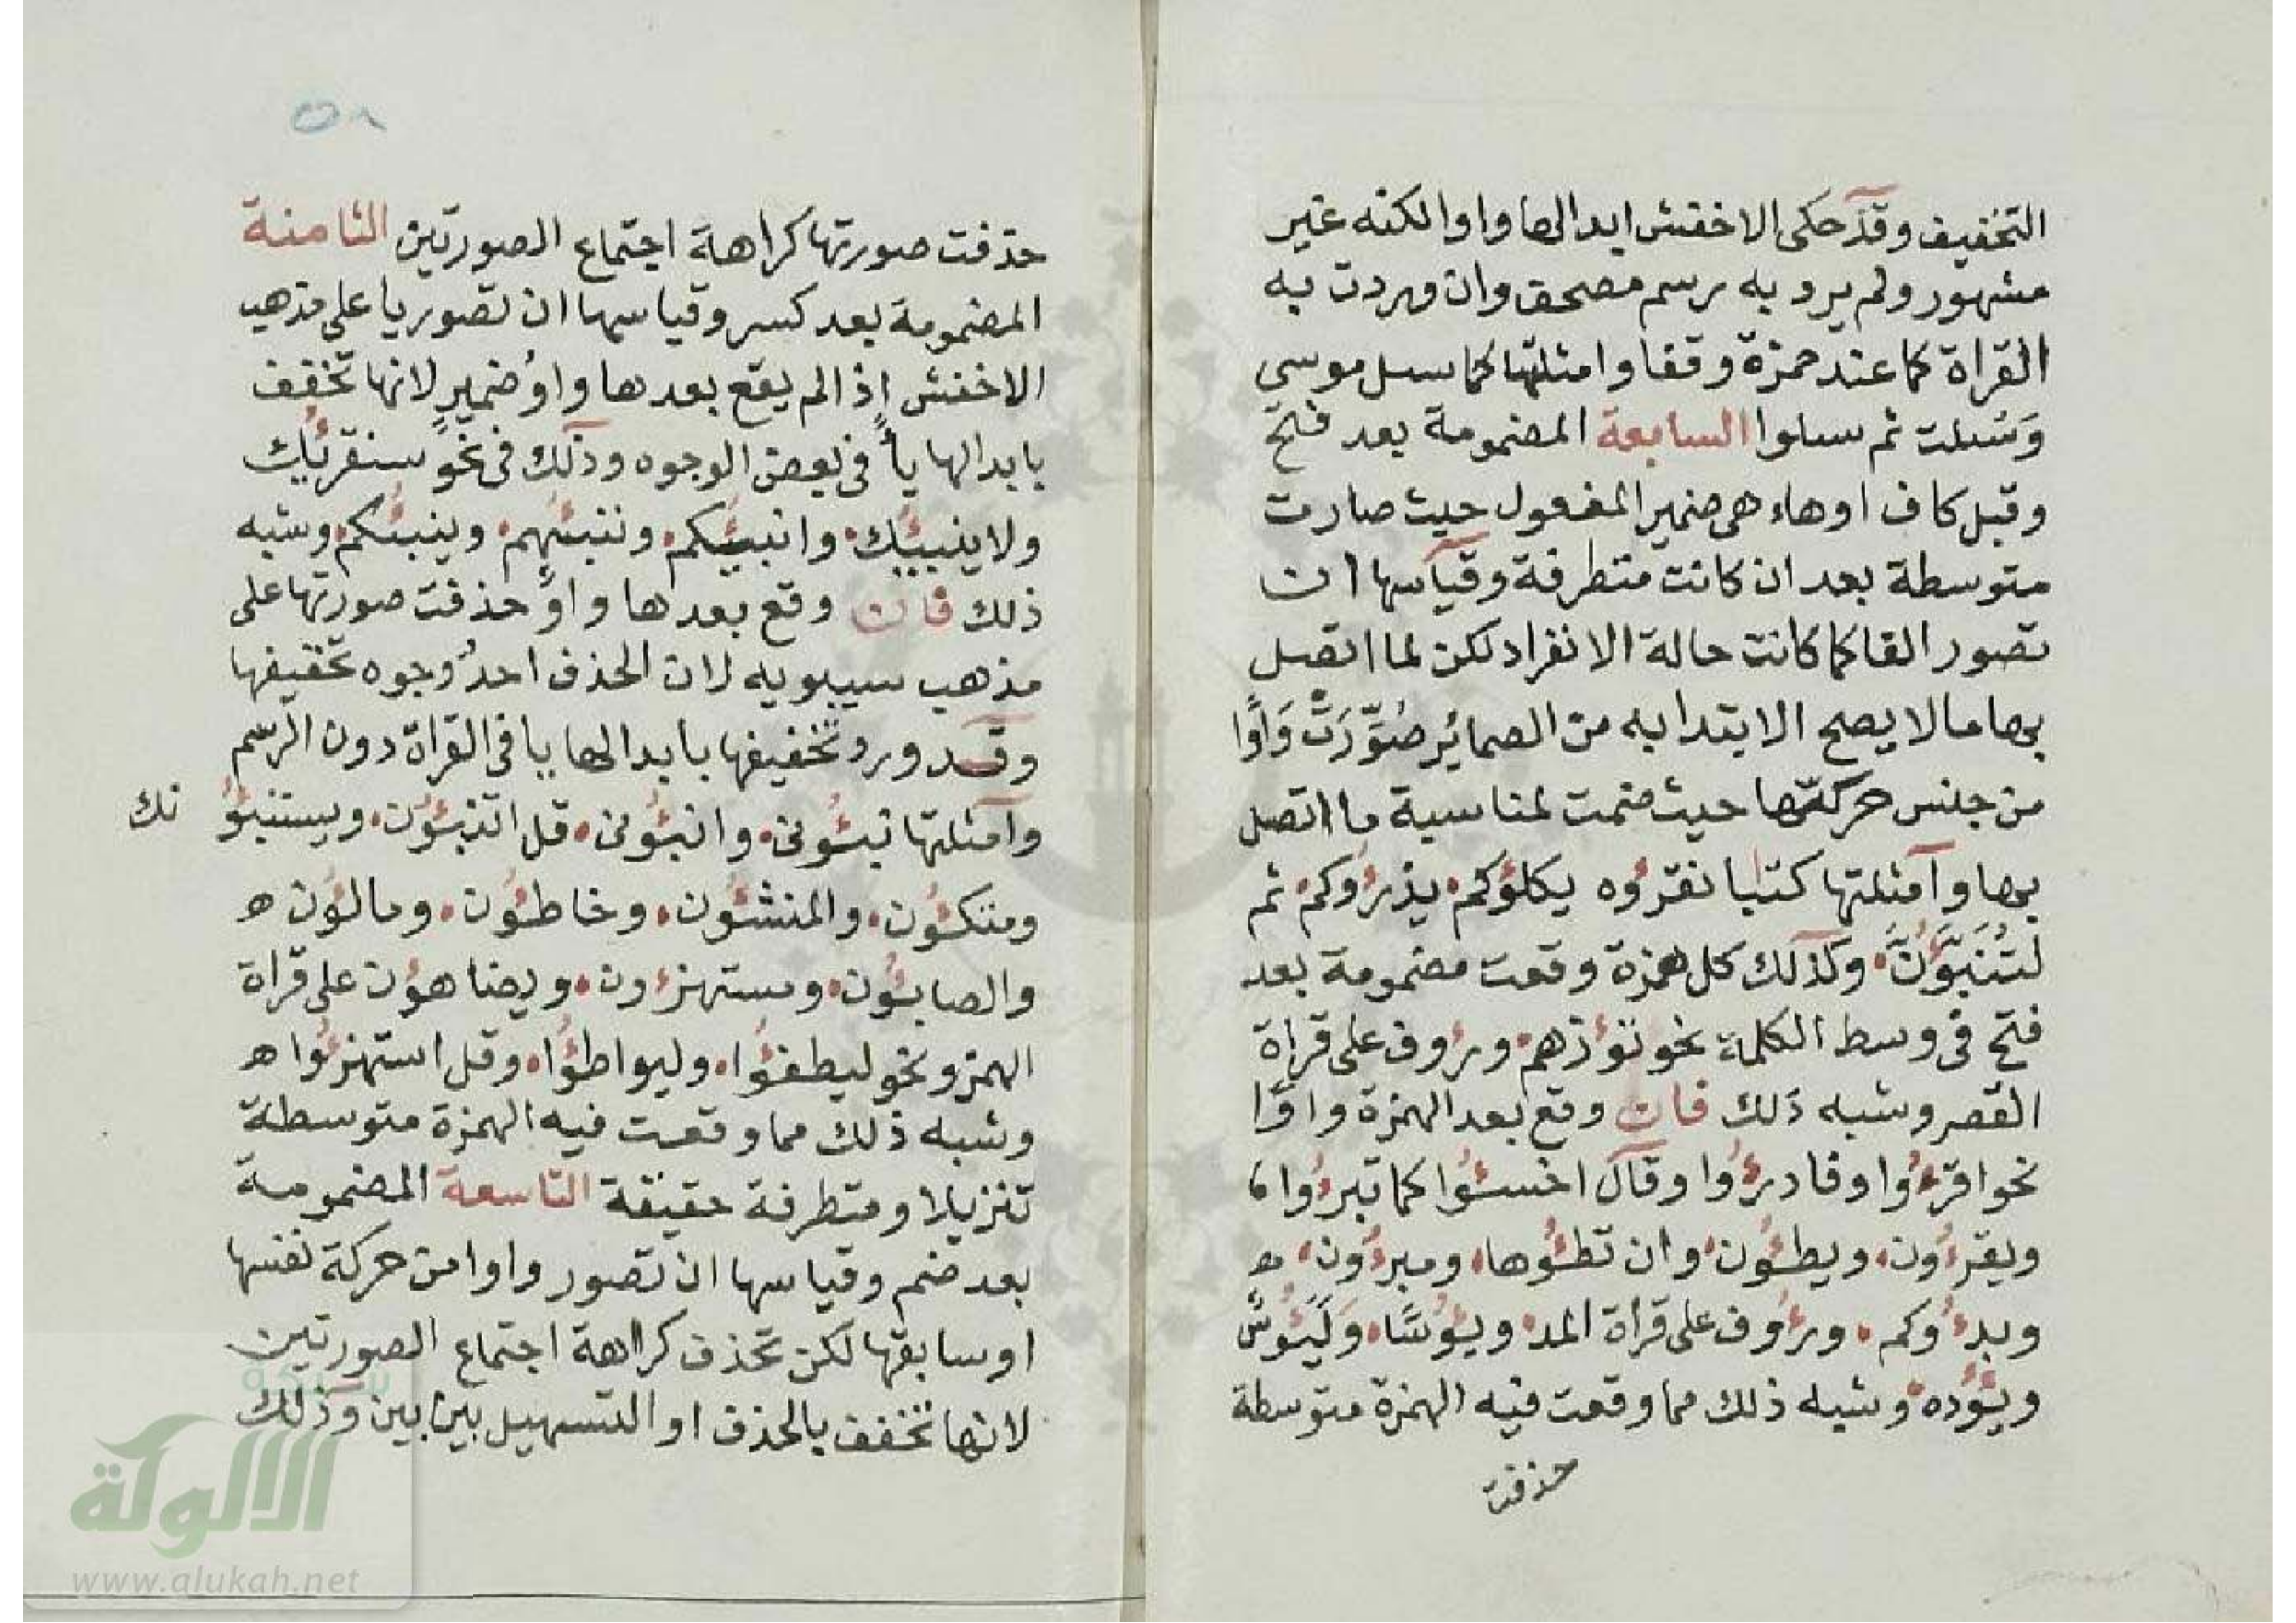 التخفيف وقد حكى الاخفش ابدالها واوا لكنه غير
مشهور ولم يرد به رسم مصحف وان وردت به
القراة كما عند حمزة وقفا وامثلتها كما سىل موسى
وَسُىلت ثم سىلوا السابعة المضمومة بعد فتح
وقبل كاف اوهاء هى ضمير المفعول حيث صارت
متوسطة بعد ان كانت متطرفة وقياسها ان
تصور الفا كما كانت حالة الانفراد لكن لما اتصل
بها ما لا يصح الابتدا به من الضمائر صُوِّرَتْ وَاوًا
من جنس حركتها حيث ضمت لمناسبة ما اتصل
بها وامثلتها كتابا نقرؤه يكلؤكم يذرؤكم ثم
لتُنَبَّؤُنَّ وكذلك كل همزة وقعت مضمومة بعد
فتح فى وسط الكلمة نحو تؤزهم ورؤف على قراة
القصر وشبه ذلك فان وقع بعد الهمزة واوًا
نحو اقرءُوا وفادرءُوا وقال اخسئُوا كما تبرءُوا
ويقرءُون ويطئُون وان تطئُوها ومبرءُون ه
وبدءُوكم ورءُوف على قراة المد ويئُوسًا وَلَيَئُوسٌ
ويئُوده وشبه ذلك مما وقعت فيه الهمزة متوسطة
حذفت
٥٨
حذفت صورتها كراهة اجتماع الصورتين الثامنة
المضمومة بعد كسر وقياسها ان تصور يا على مذهب
الاخفش اذا لم يقع بعدها واوُ ضميرٍ لانها تخفف
بابدالها ياً فى بعض الوجوه وذلك فى نحو سنقرئك
ولا ينبئك وانبئكم وننبئهم وينبئكم وشبه
ذلك فان وقع بعدها واوٌ حذفت صورتها على
مذهب سيبويه لان الحذف احدُ وجوه تخفيفها
وقد ورد تخفيفها بابدالها يا فى القراة دون الرسم
وامثلتها نبئُونى وانبئُونى قل اتنبئُون ويستنبئُو نك
ومتكئُون والمنشئُون وخاطئُون ومالئُون ه
والصابئُون ومستهزءُون ويضاهؤن على قراة
الهمز ونحو ليطفئُوا وليواطئُوا وقل استهزءُوا ه
وشبه ذلك مما وقعت فيه الهمزة متوسطة
تنزيلا ومتطرفة حقيقة التاسعة المضمومة
بعد ضم وقياسها ان تصور واوا من حركة نفسها
او سابقها لكن تحذف كراهة اجتماع الصورتين
لانها تخفف بالحذف او التسهيل بين بين وذلك
شبكة
الألوكة
www.alukah.net